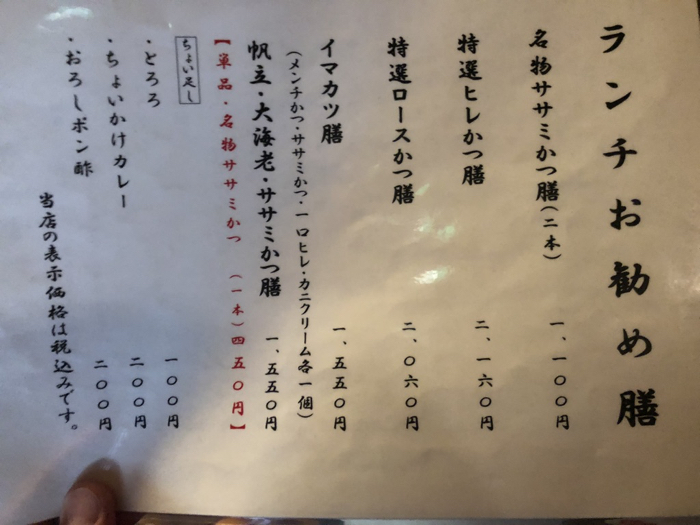 ランチお勧め膳
名物ササミかつ膳(二本) 一、一〇〇円
特選ヒレかつ膳 二、一六〇円
特選ロースかつ膳 二、〇六〇円
イマカツ膳 一、五五〇円
(メンチかつ・ササミかつ・一口ヒレ・カニクリーム各一個)
帆立・大海老・ササミかつ膳 一、五五〇円
【単品・名物ササミかつ (一本)四五〇円】
ちょい足し
・とろろ 一〇〇円
・ちょいかけカレー 二〇〇円
・おろしポン酢 二〇〇円
当店の表示価格は税込みです。